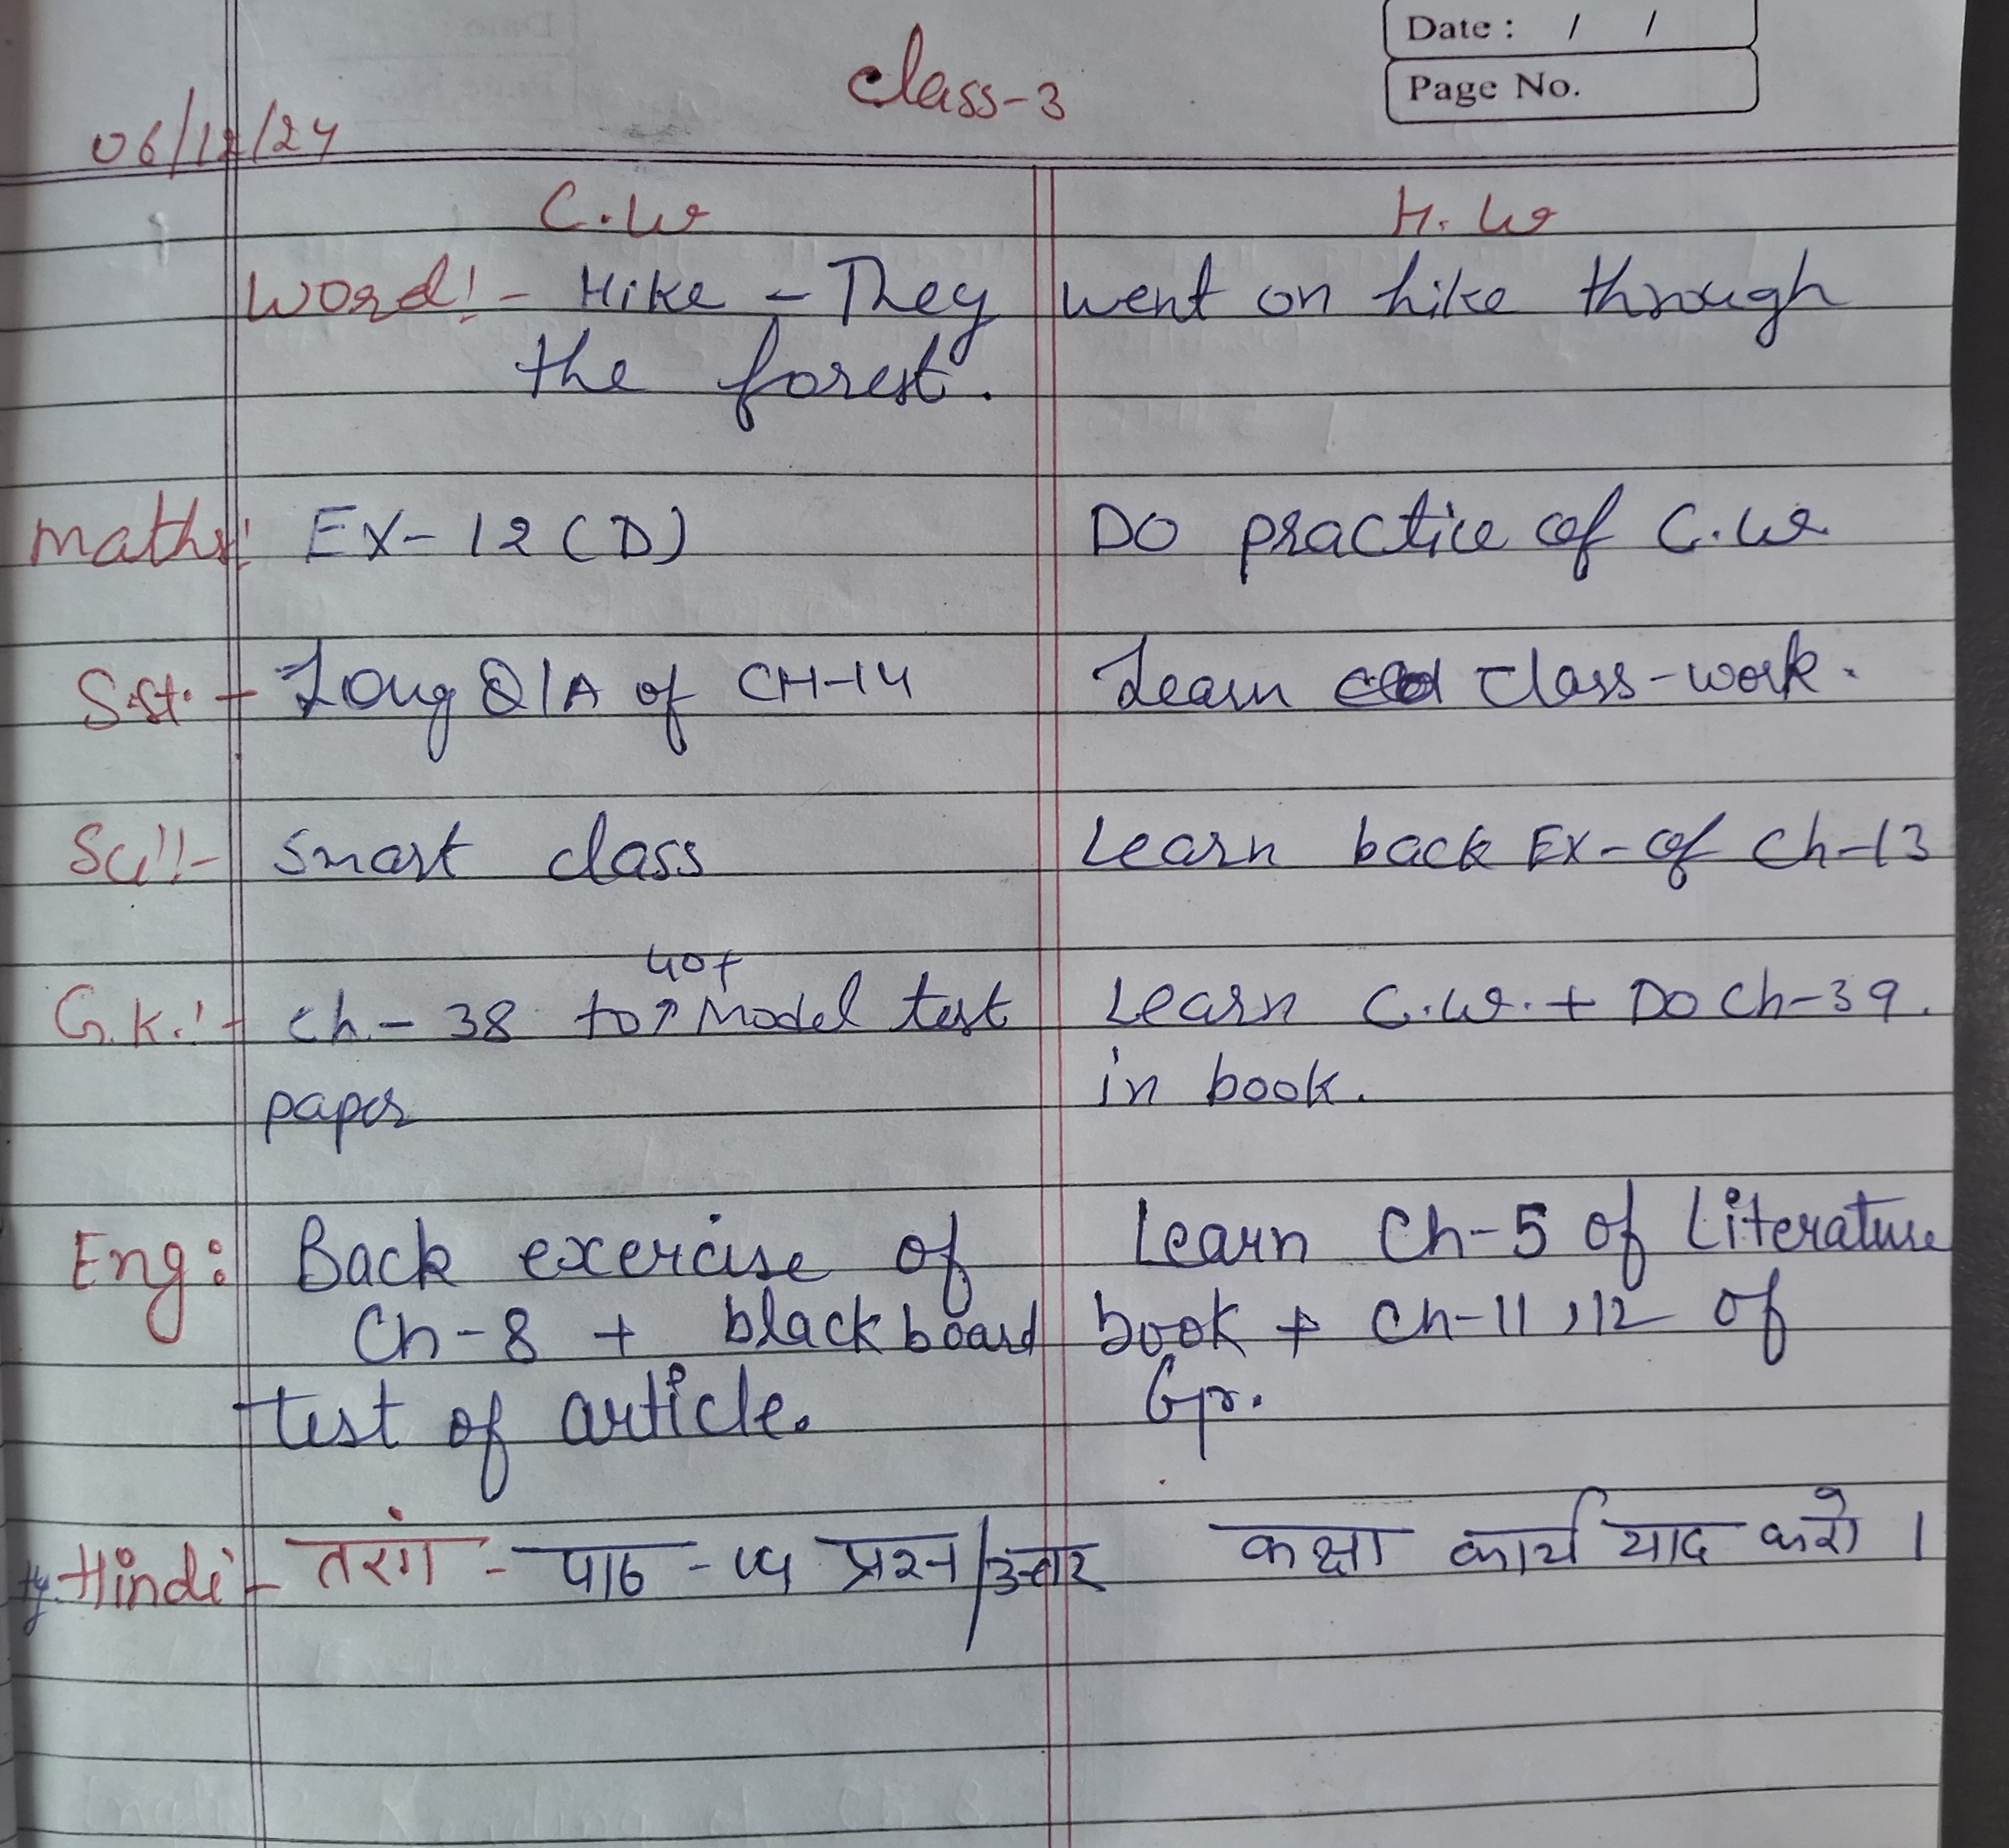 Date : / /
Page No.
class-3
06/12/24
C.W H.W
Word:- Hike - They went on hike through
the forest.
Maths: EX-12 (D) DO practice of C.W
S.st:- Long Q/A of CH-14 Learn class-work.
Sci:- Smart class Learn back Ex- of Ch-13
40+
G.K.:- Ch.- 38 to Model test Learn C.W. + Do Ch-39.
paper in book.
Eng: Back exercise of Learn Ch-5 of Literature
Ch-8 + black board book + Ch-11,12 of
test of article. Gr.
Hindi:- तरंग - पाठ - प्रश्न/उत्तर कक्षा कार्य याद करो ।